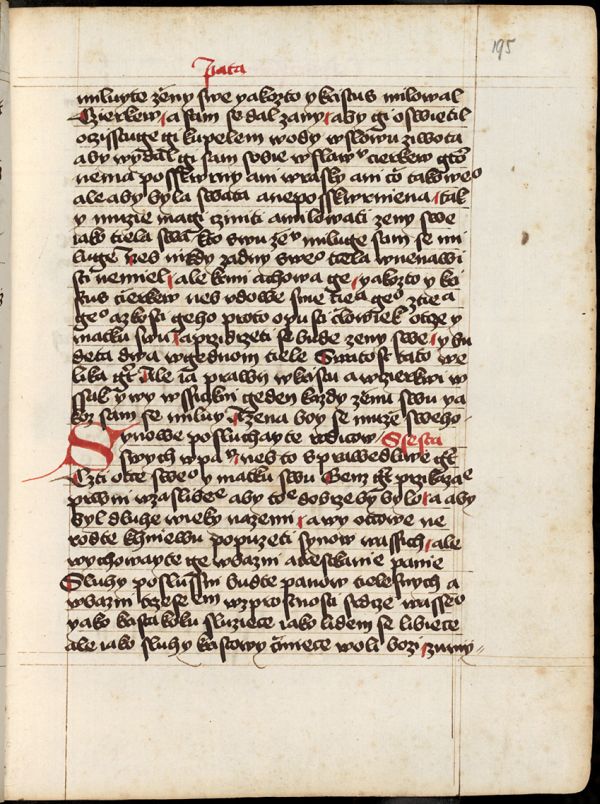 195
Pata
miluyte zeny swe yakozto y kristus milowal
Czierkew / a sam se dal zany / aby gi oswietil
ocziscuge gi kupelem wody w slowu ziwota
aby wydal gi sam sobie w slaw cierkew
nema posskwrny ani wrasky ani co takoweo
ale aby byla swata a neposskwrniena / tak
y muzie magi cziniti a milowati zeny swe
iako tiela swa ko swu miluge sam se mi
luge nes nikdy zadny sweo tiela w nenawi
sti nemiel / ale krmi a chowa ge / yakozto y kri
stus cierkew nes vdowe sme
geo a z kosti geho proto opusti clowiek otcze y
matku swu / a przidrzeti se bude zeny swe / y bu
deta dwa w gednom tiele Swatost tato we
lika Ale ia prawim w kristu a w czierkwi
wssickni geden kazdy zenu swu ya
koz sam se miluy / Zena boy se muze sweho
Synowe posluchayte rodicow / Ssesta
swych w pa nes to sprawedliwe
Czti otce sweo y matku swu
prwni w zaslibee aby toe dobrze bylo / a aby
byl dluhe wieky na zemi / a wy otcowe ne
rodte k hniewu popuzeti synow wassich / ale
wychowayte ge w kazni a trestanie panie
Sluhy poslussni budte panow tielesnych a
w bazni w zprostnosti srdcze wasseo
yako krista ku sluziece iako lidem se libiece
ale iako sluhy kristowy czniece woli bozi z